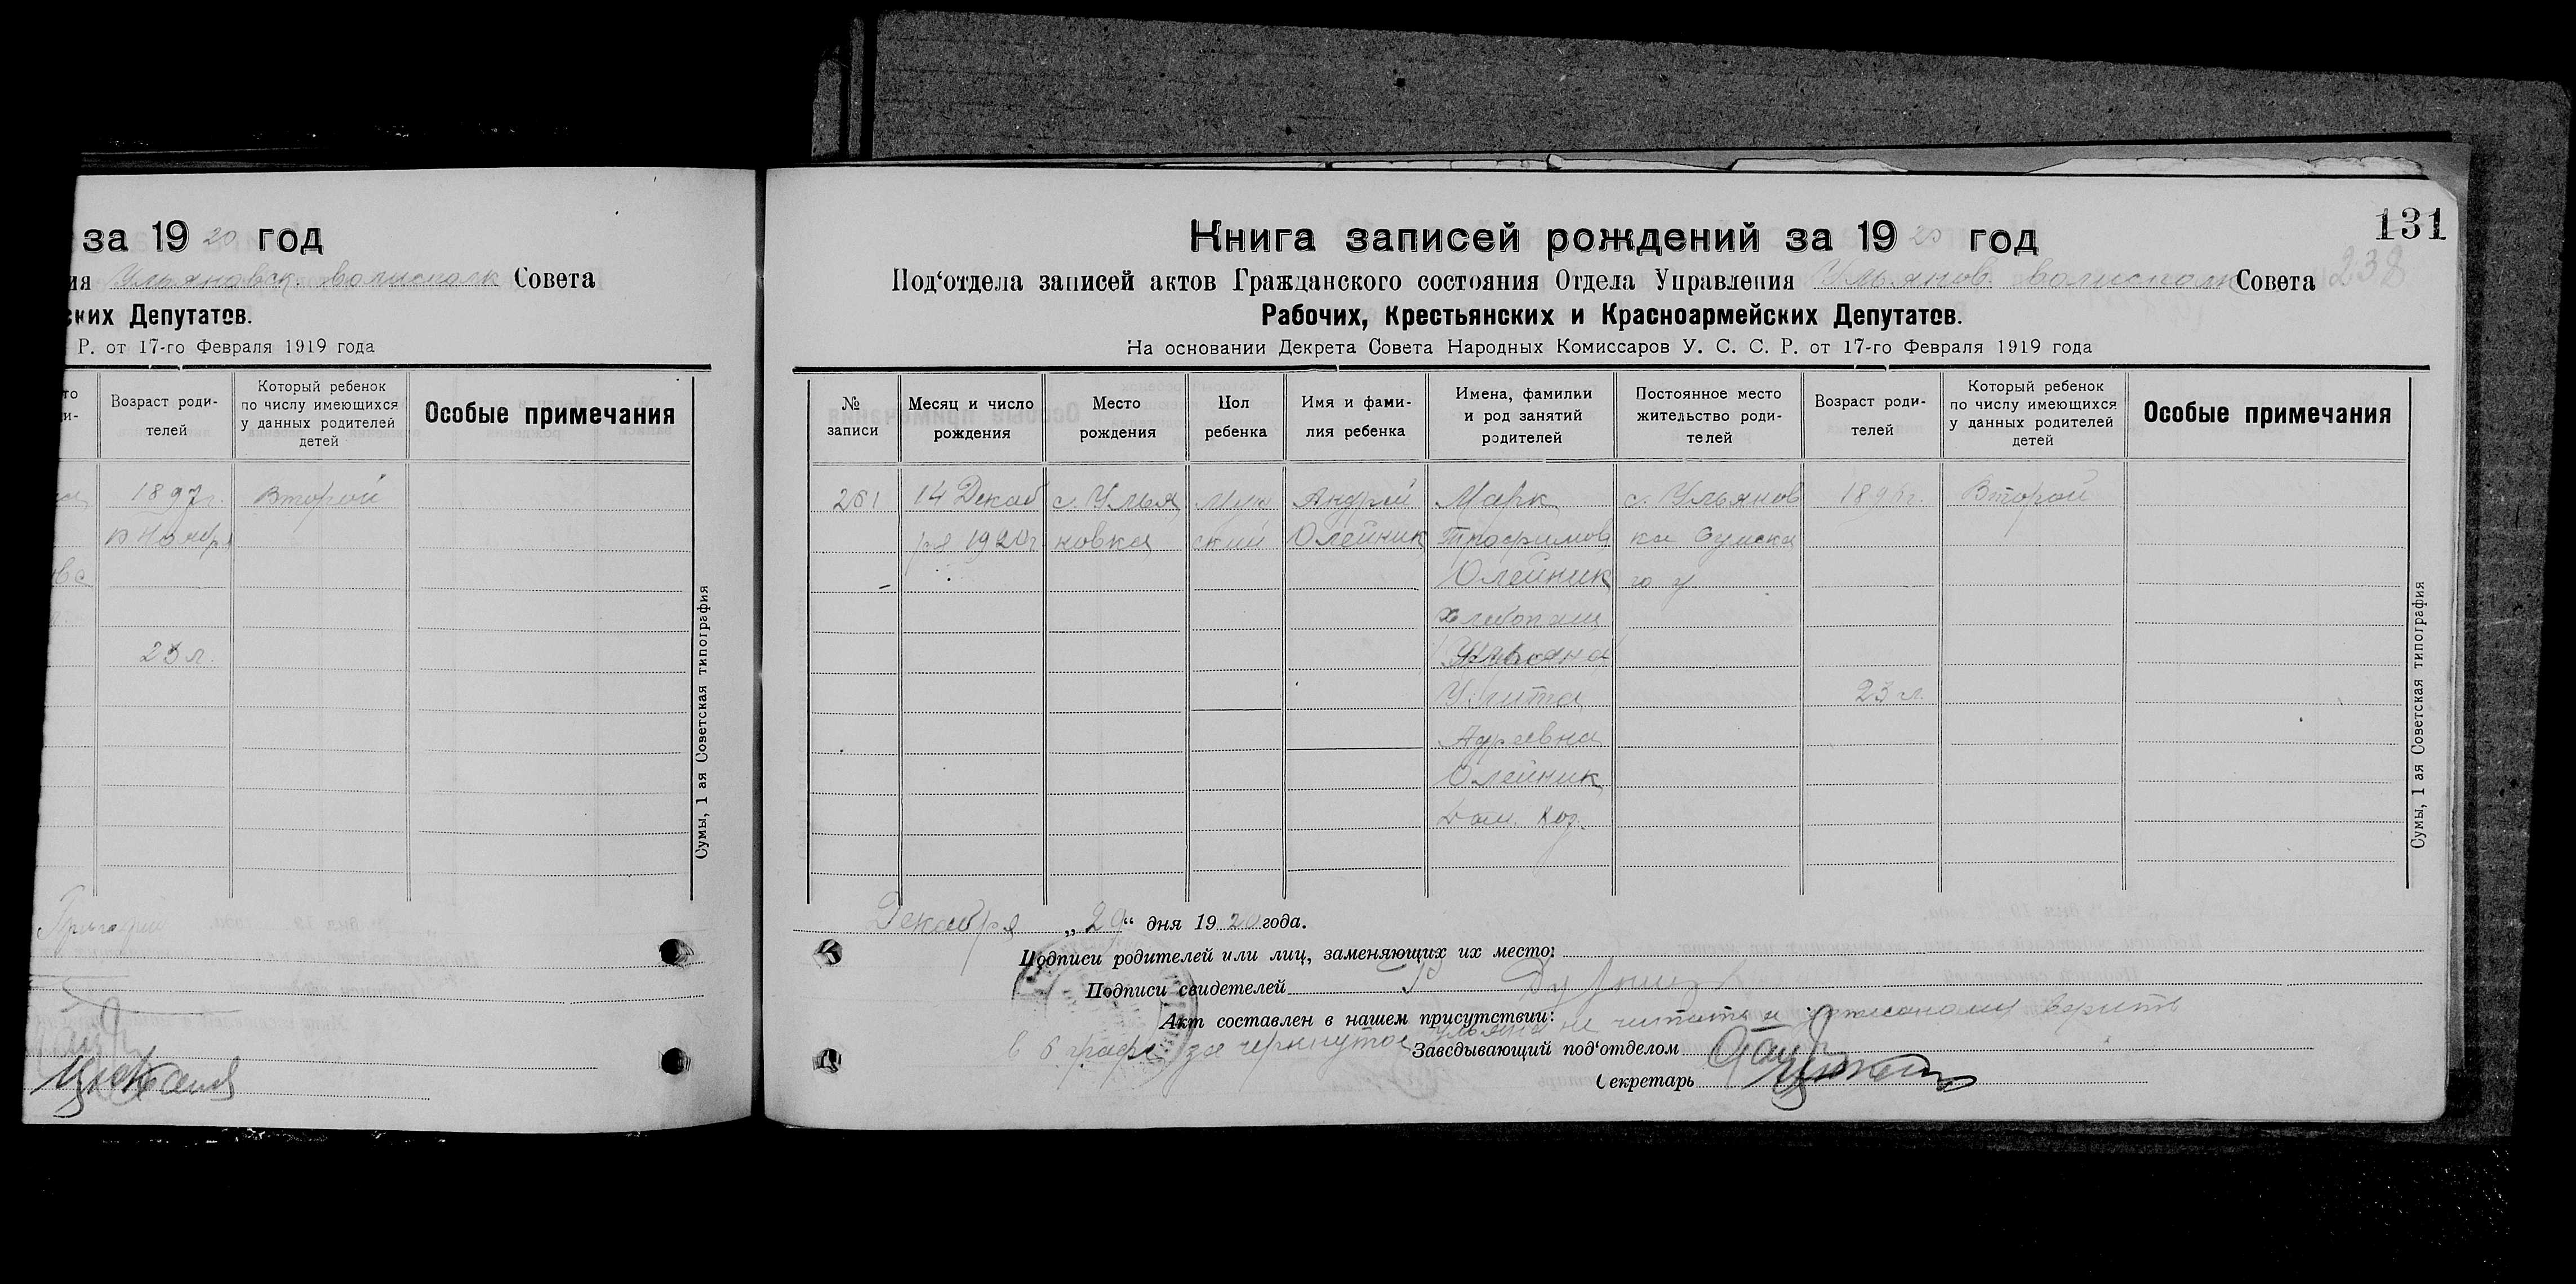 за 1920 год
ия Ульяновск. волисполк Совета
ских Депутатов.
Р. от 17-го Февраля 1919 года
то
и-
Возраст роди-
телей
Который ребенок
по числу имеющихся
у данных родителей
детей
Особые примечания
1897г. Второй
23 л.
Григорий
Сумы, 1 ая Советская типография
131
238
Книга записей рождений за 1920 год
Под'отдела записей актов Гражданского состояния Отдела Управления Ульянов. волисполк Совета
Рабочих, Крестьянских и Красноармейских Депутатов.
На основании Декрета Совета Народных Комиссаров У. С. С. Р. от 17-го Февраля 1919 года
№
записи
Месяц и число
рождения
Место
рождения
Пол
ребенка
Имя и фами-
лия ребенка
Имена, фамилии
и род занятий
родителей
Постоянное место
жительство роди-
телей
Возраст роди-
телей
Который ребенок
по числу имеющихся
у данных родителей
детей
Особые примечания
261 14 Декаб с. Улья Муж Андрей Марк с. Ульянов Второй
ря 1920г новка ский Олейник Трофимов ка Сумска
Олейник го у
хлебопаш
23 л.
Олейник
Дом. Хоз.
Сумы, 1 ая Советская типография
Декабря „29“ дня 1920 года.
Подписи родителей или лиц, заменяющих их место:
Подписи свидетелей
Акт составлен в нашем присутствии:
в 6 графе зачеркнутое Ульяна не читать и написаному верить
Заведывающий под'отделом
Секретарь